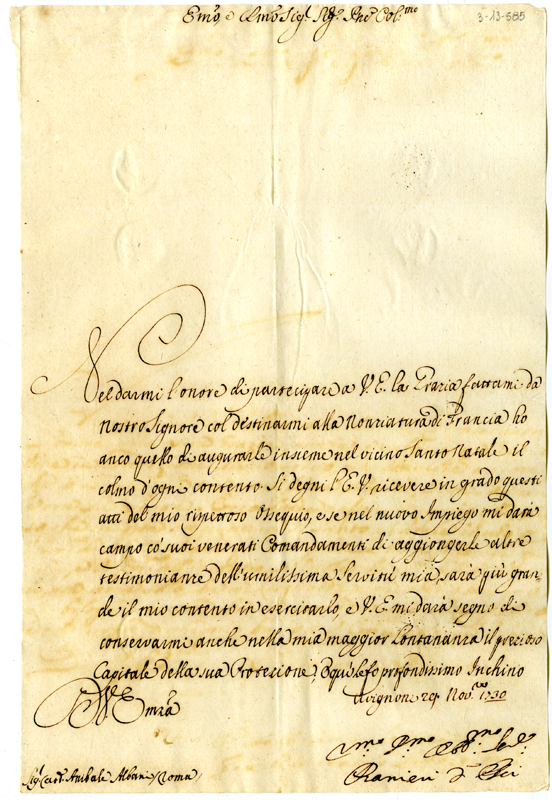 3-13-585
Em͞o, e Rmo Sigr Sigr Pne Colmo
Nel darmi l'onore di partecipare a V.E. la Grazia fattami da
Nostro Signore col destinarmi alla Nonziatura di Francia ho
anco quello di augurarle insieme nel vicino Santo Natale il
colmo d'ogni contento. Si degni l'E.V. ricevere in grado questi
atti del mio rispettoso Ossequio, e se nel nuovo Impiego mi darà
campo co' suoi venerati Comandamenti di aggiongerle altre
testimonianze dell'umilissima Servitù mia, sarà più gran-
de il mio contento in esercitarlo, e V.E. mi darà segno di
conservarmi anche nella mia maggior Lontananza il prezioso
Capitale della sua Protezione; e qui le fo profondissimo Inchino
Di V. Emza
Avignone 29 Nov.re 1730
Umo Dmo Obmo Serr
Ranieri d'Elci
Sigr Card. Anibale Albani, Roma